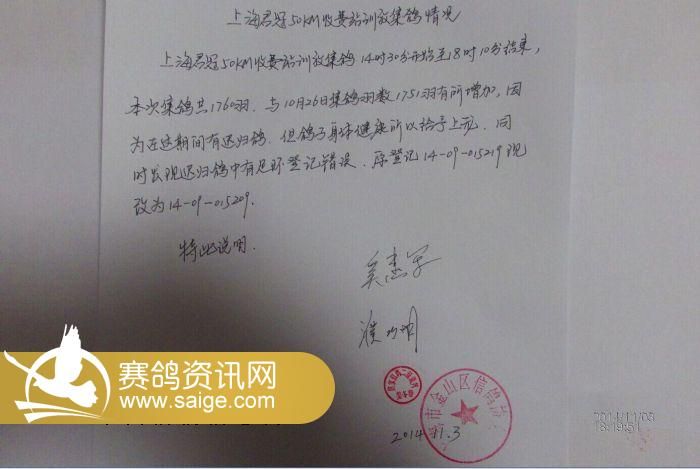 上海君冠50KM收费站训放集鸽情况
上海君冠50KM收费站训放集鸽14时30分开始至18时10分结束，
本次集鸽共1760羽，与10月26日集鸽羽数1751羽有所增加，因
为在这期间有迟归鸽，但鸽子身体健康所以给予上笼，同
时发现迟归鸽中有足环登记错误，原登记14-09-015219现
改为14-09-015209.
特此说明.
2014.11.3
市金山区信鸽
赛鸽资讯网
www.saige.com
2014/11/03
18:19:51